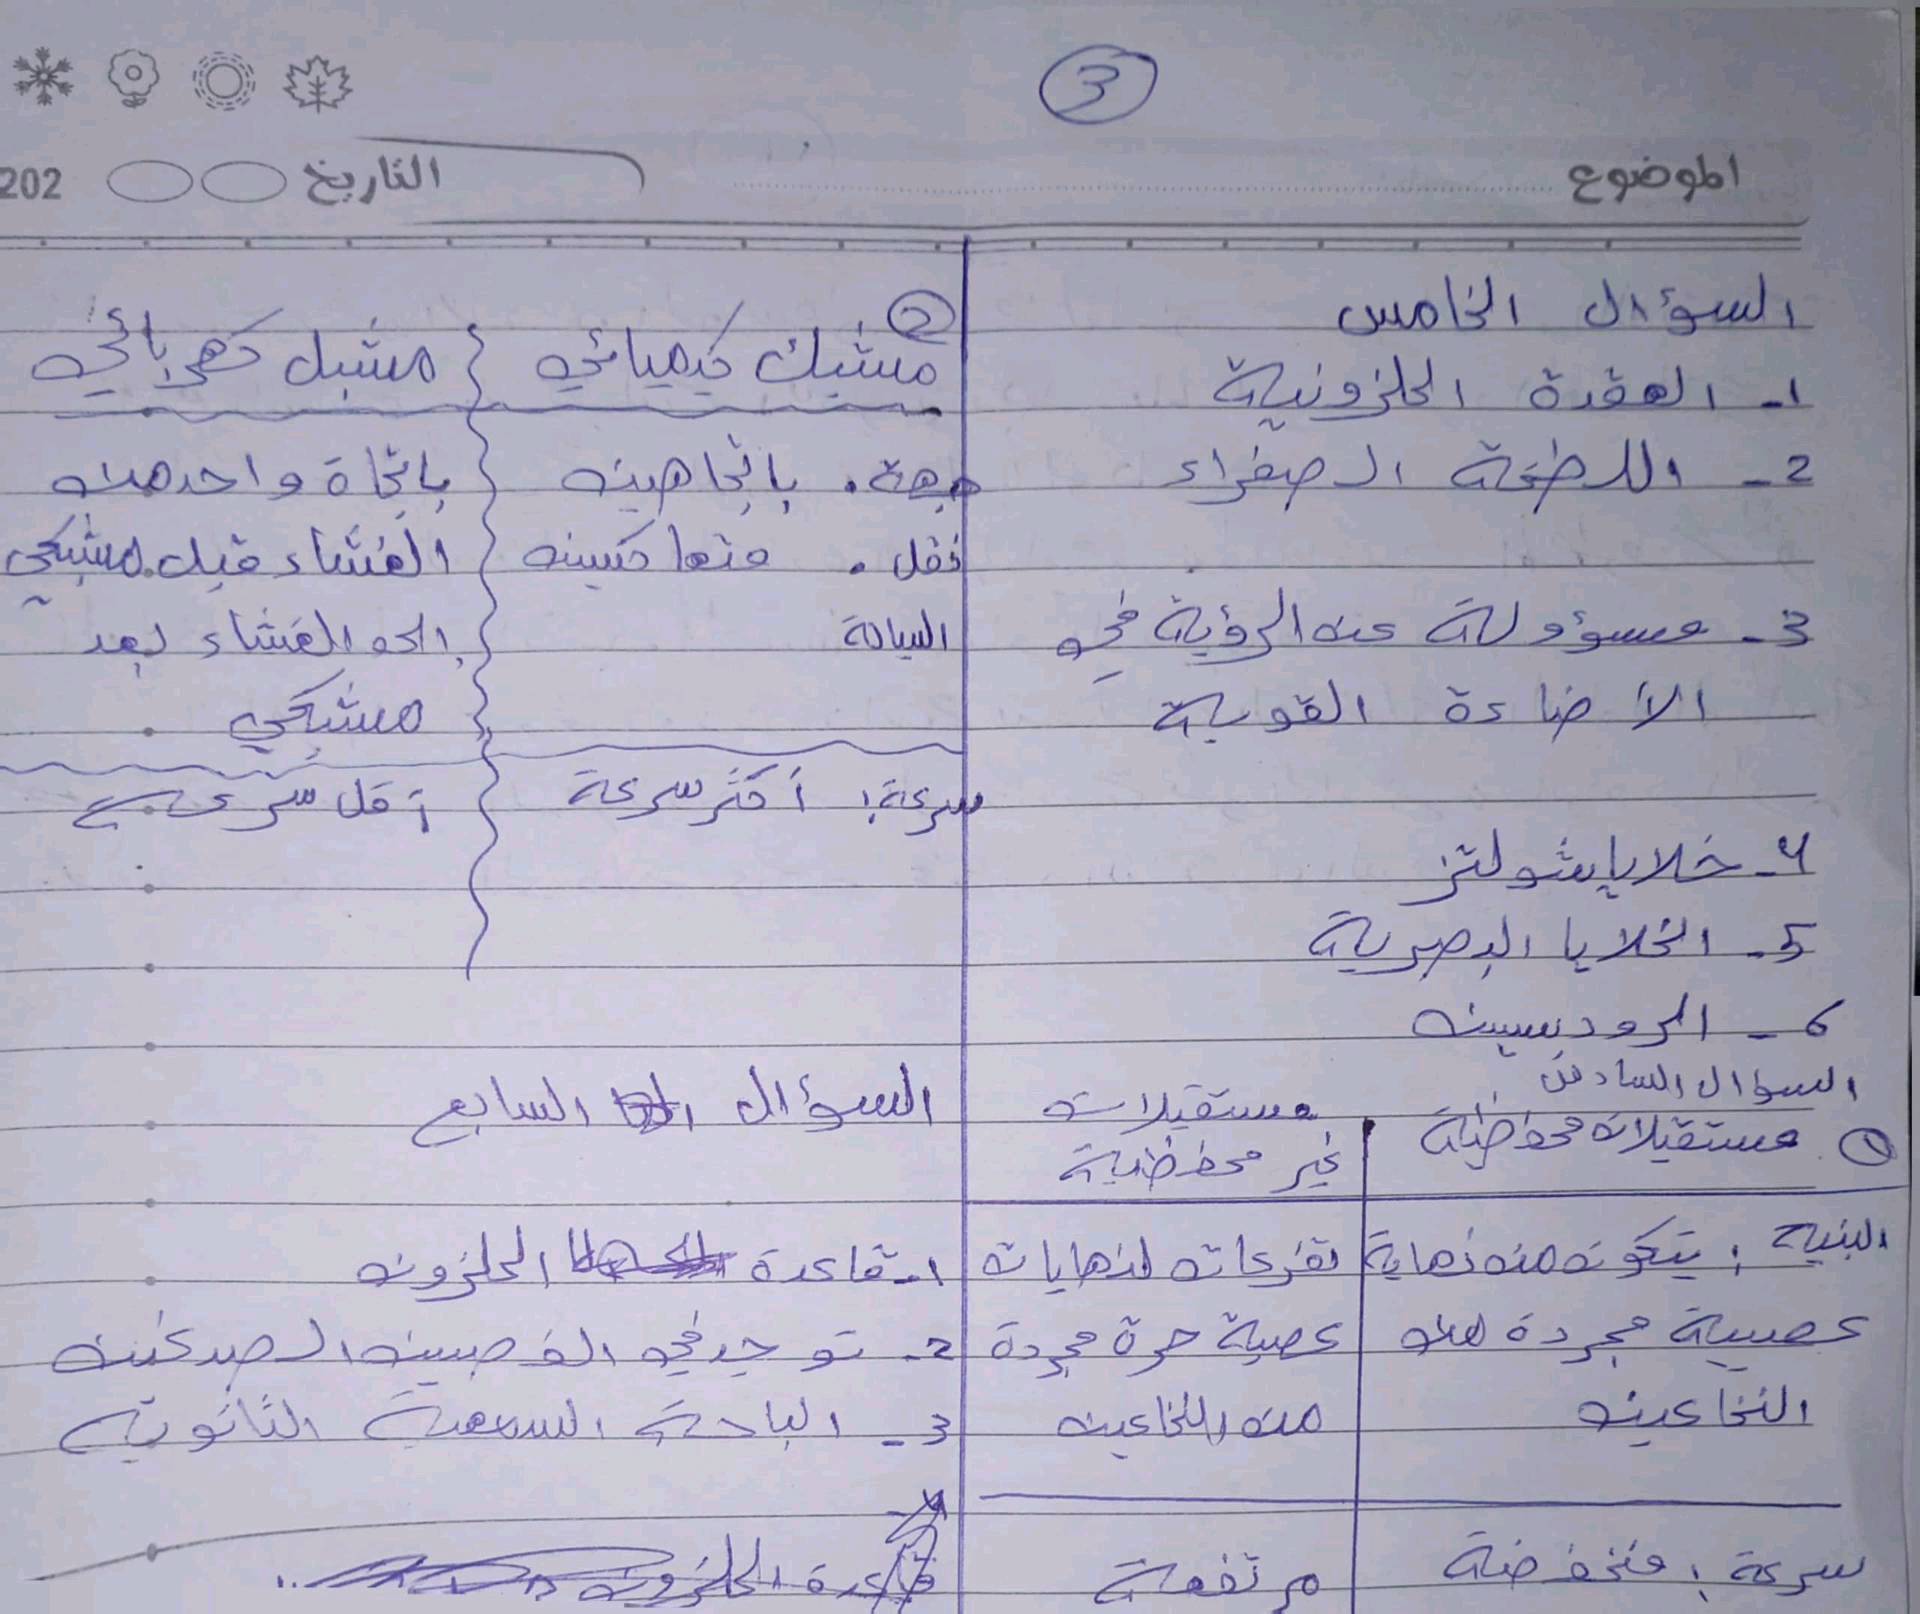 3
الموضوع
التاريخ 202
السؤال الخامس
1- العقدة الحلزونية
2- اللطخة الصفراء
3- مسؤولة عن الرؤية في
الأضاءة القوية
4- خلايا شولتز
5- الخلايا البصرية
6- الرودبسين
السؤال السادس
1 مستقبلات محفظية
مستقبلات
غير محفظية
البنية: يتكون من نهاية
تفرعات لنهايات
عصبية مجردة من
عصبية حرة مجردة
النخاعين
من النخاعين
سرعة: منخفضة
مرتفعة
2
مشبك كيميائي
مشبل كهربائي
جهة. باتجاهين
باتجاة واحد من
نقل. متعاكسين
الغشاء قبل مشبكي
السيالة
الى الغشاء بعد
مشبكي
سرعة: أكثر سرعة
أقل سرعة
السؤال السابع
1- قاعدة الحلزون
2- توجد في الفصين الصدغين
3- الباحة السمعية الثانوية
قاعدة الحلزون